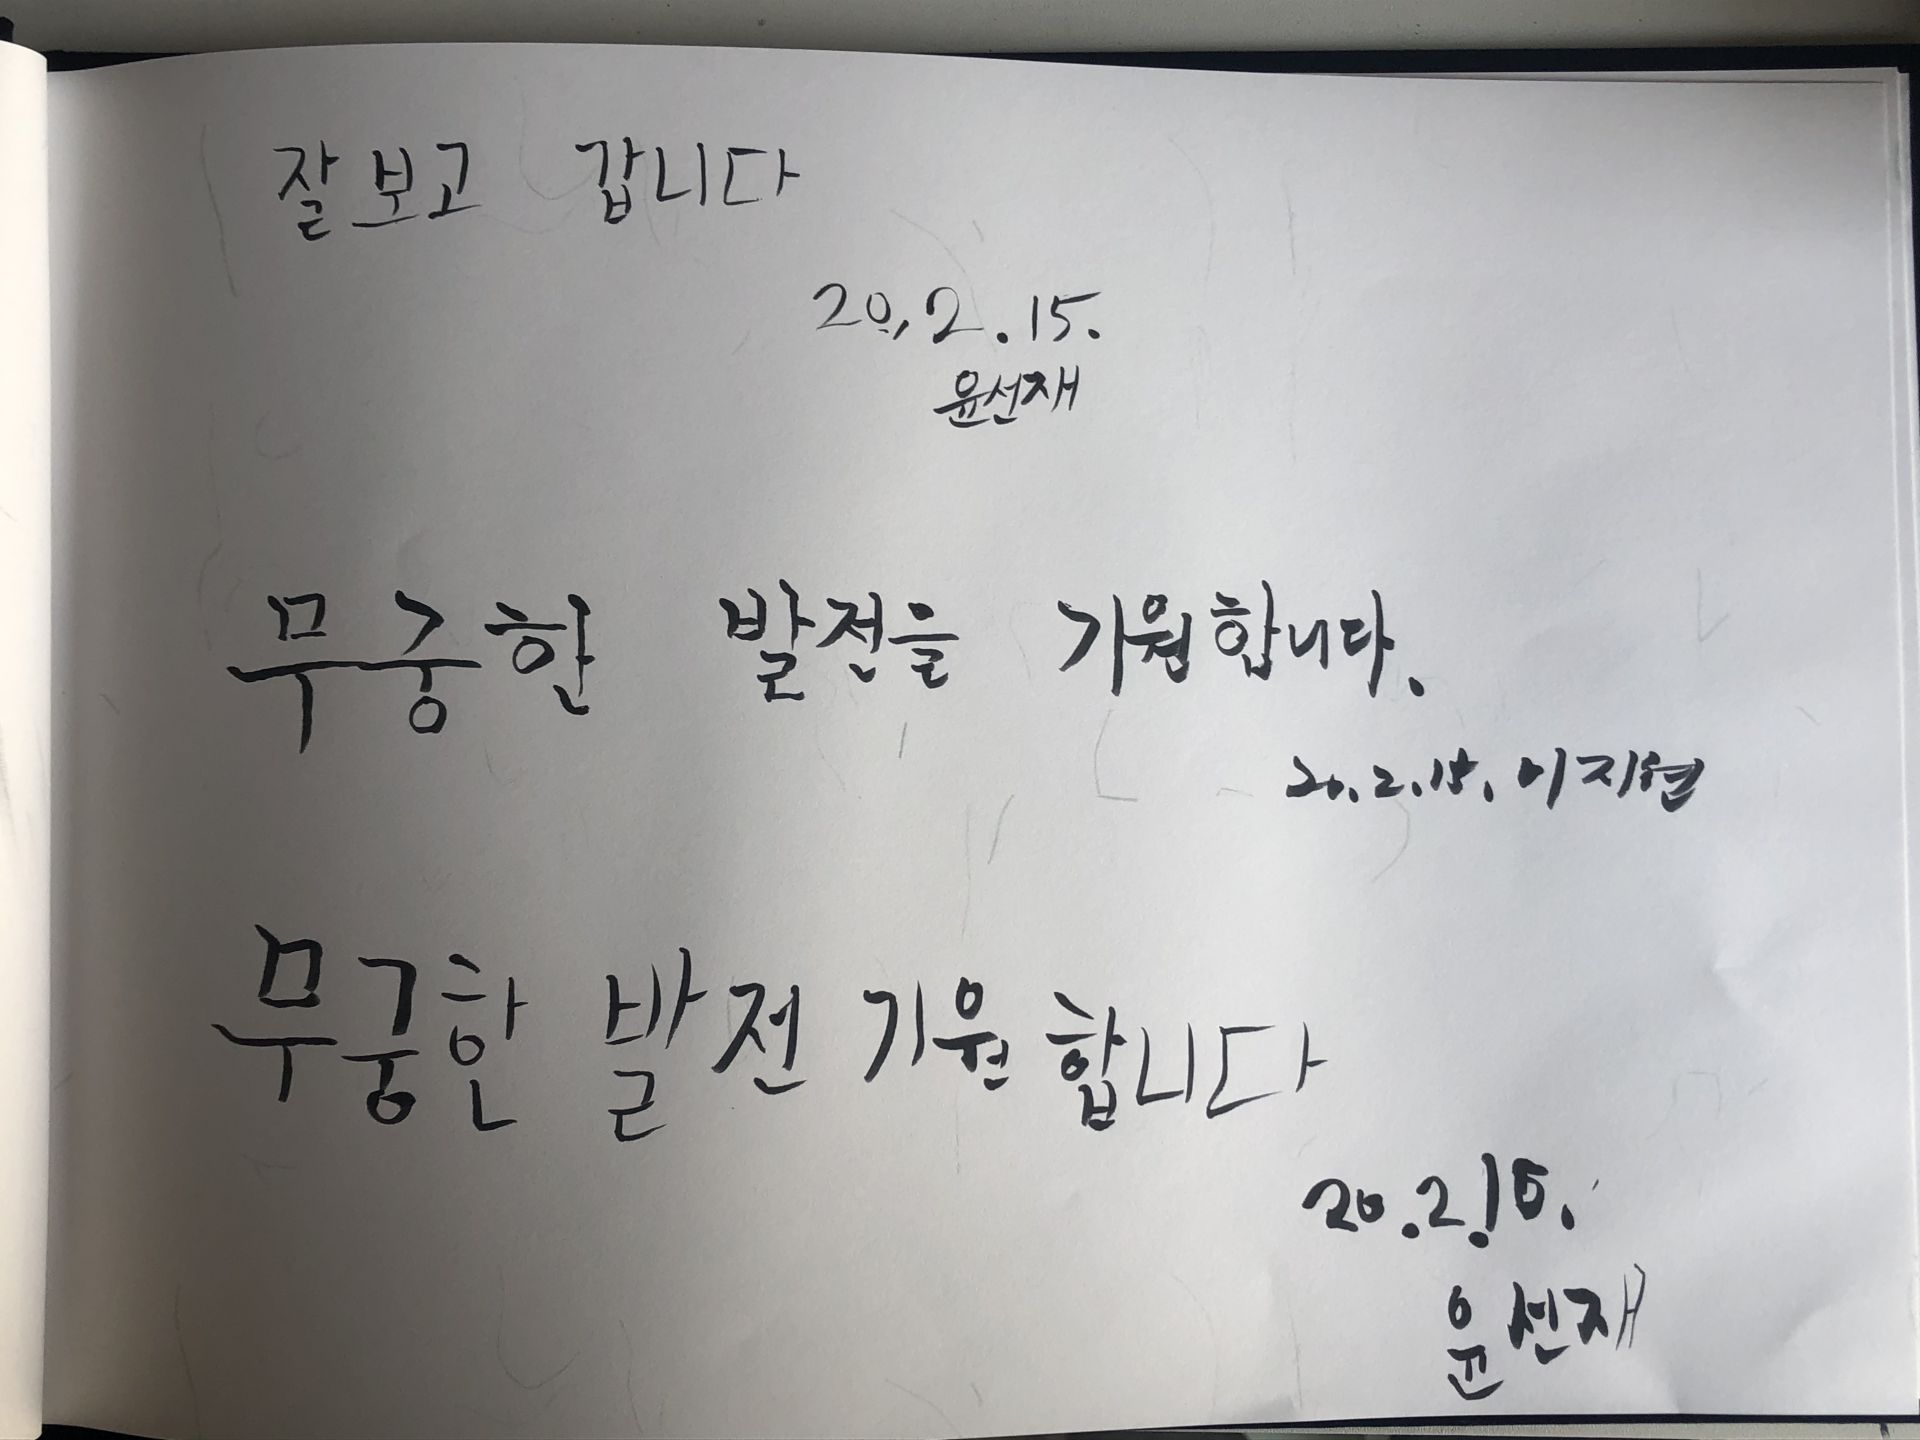 잘 보고 갑니다
20. 2. 15.
윤선재
무중한 발전을 기원합니다.
20. 2. 15. 이지현
무궁한 발전 기원합니다
20. 2. 15.
윤선재